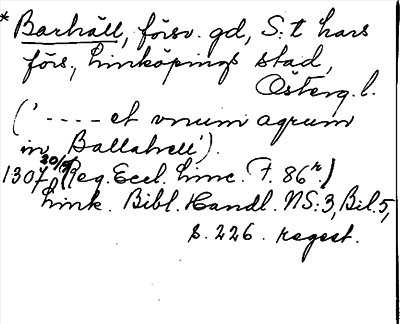 * Barhäll, försv. gd, S:t Lars
förs., Linköpings stad,
Österg. l.
(' ---- et unum agrum
in Ballahell').
30/9
1307 (Reg. Eccl. Linc. F. 86r)
Link. Bibl. Handl. NS:3, Bil. 5,
s. 226. regest.